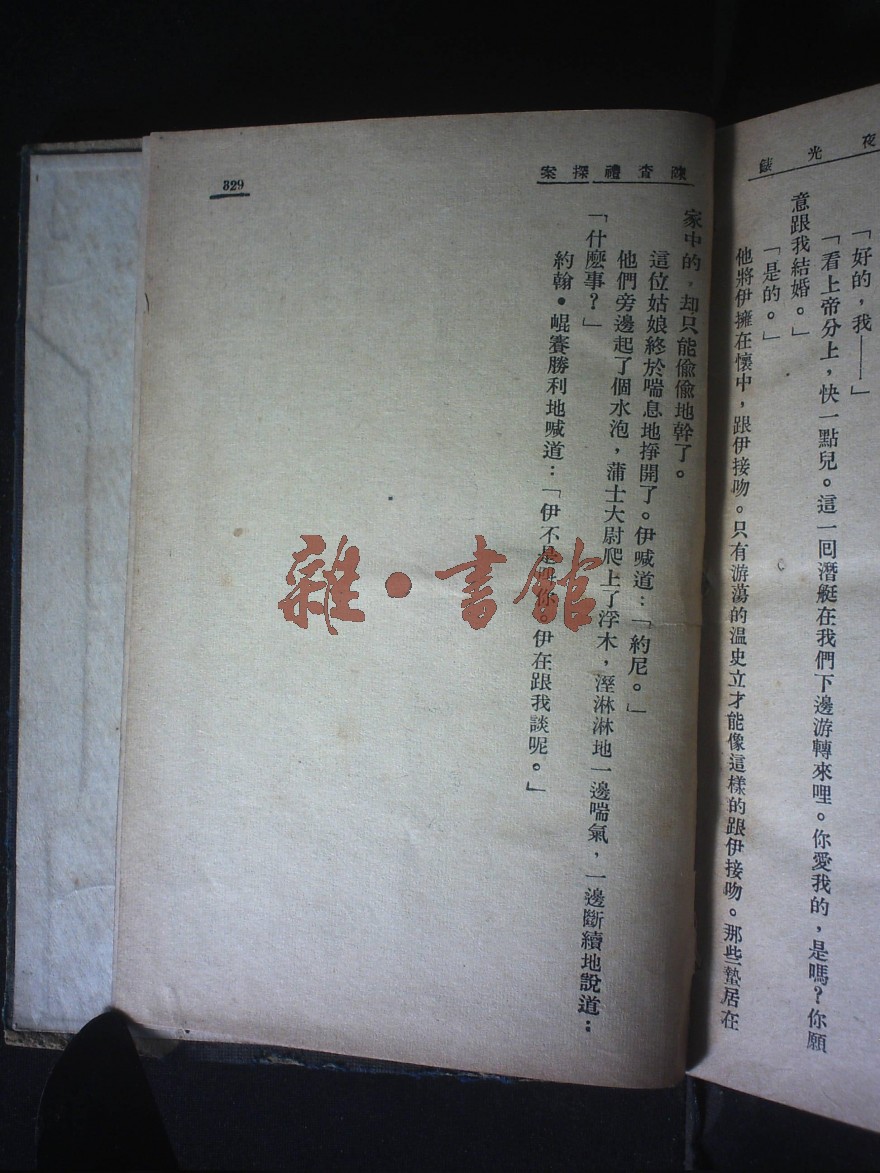 夜光錶
「好的，我——」
「看上帝分上，快一點兒。這一囘潛艇在我們下邊游轉來哩。你愛我的，是嗎？你願
意跟我結婚。」
「是的。」
他將伊擁在懷中，跟伊接吻。只有游蕩的溫史立才能像這樣的跟伊接吻。那些蟄居在
陳查禮探案
家中的，却只能偷偷地幹了。
這位姑娘終於喘息地掙開了。伊喊道：「約尼。」
他們旁邊起了個水泡，蒲士大尉爬上了浮木，溼淋淋地一邊喘氣，一邊斷續地說道：
「什麼事？」
約翰•崐賽勝利地喊道：「伊不是你。伊在跟我談呢。」
329
雜•書館